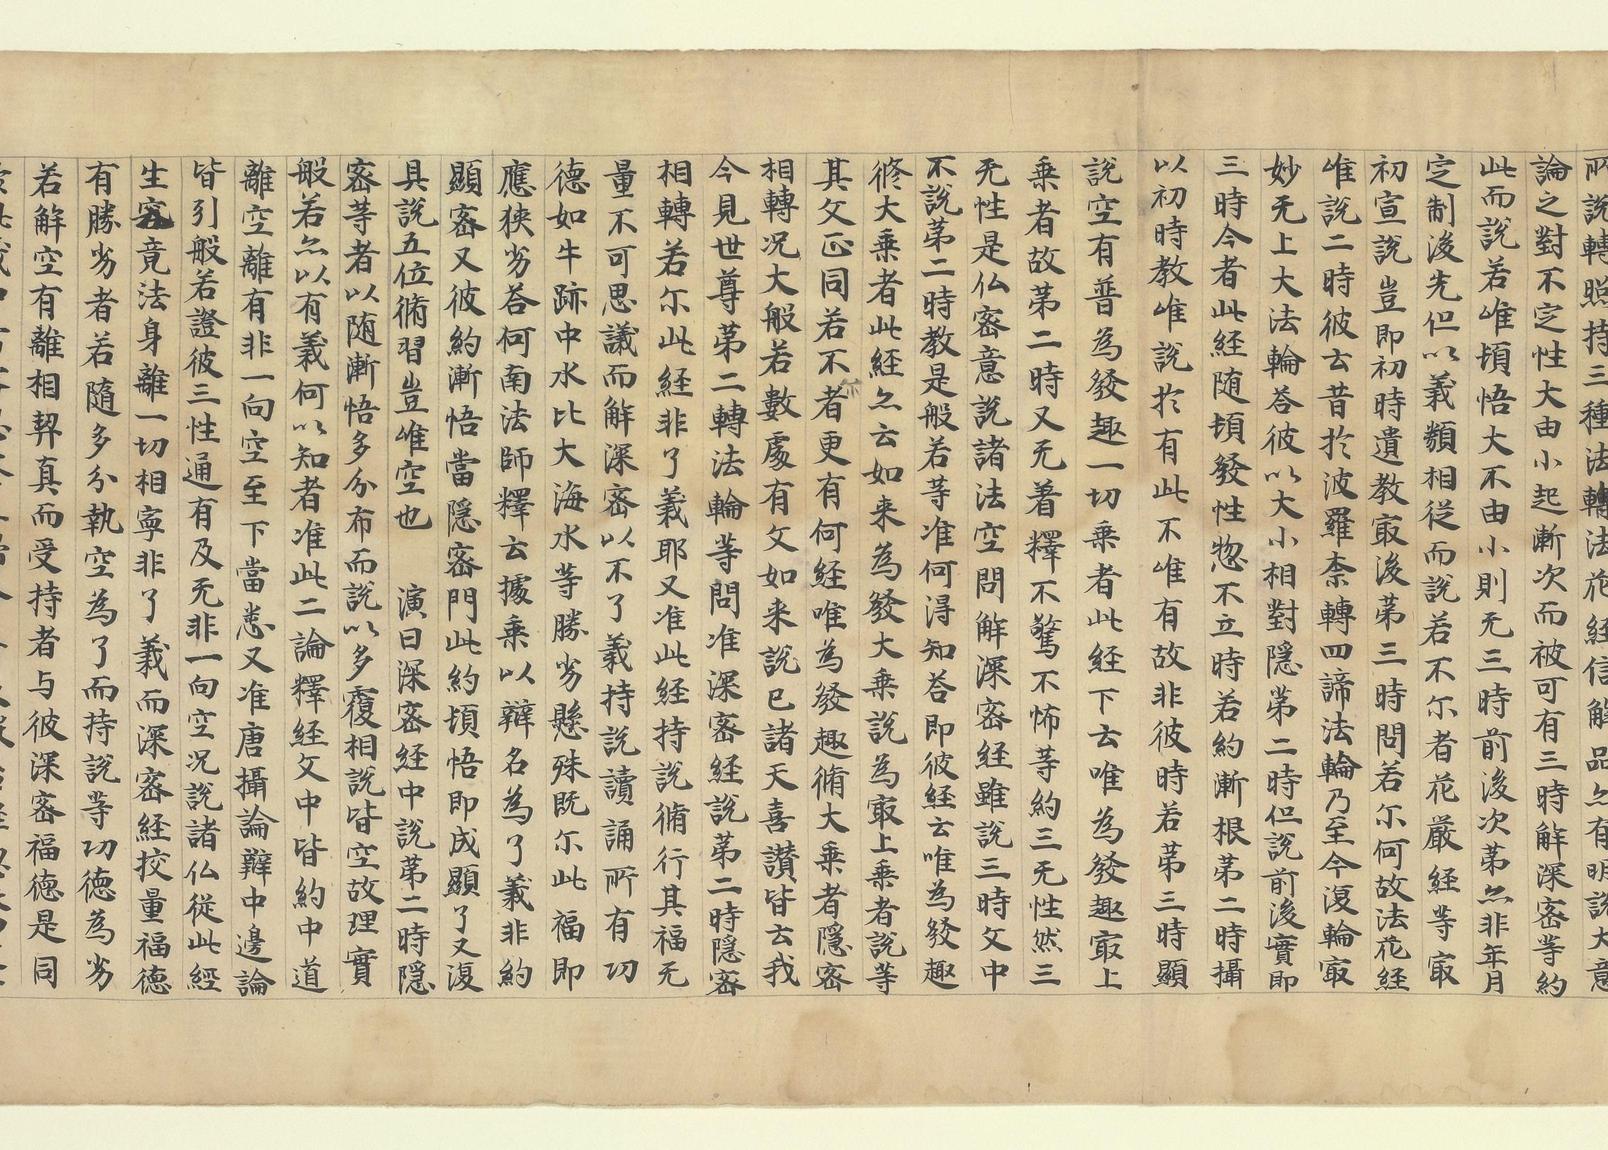 所說轉照持三種法轉法花經信解品亦有明說大意
論之對不定性大由小起漸次而被可有三時解深密等約
此而說若唯頓悟大不由小則无三時前後次第亦非年月
定制後先但以義類相從而說若不尔者花嚴經等寂
初宣說豈即初時遺教寂後第三時問若尔何故法花經
唯說二時彼云昔扵波羅柰轉四諦法輪乃至今復輪寂
妙无上大法輪荅彼以大小相對隱第二時但說前後實即
三時今者此經随頓發性惣不立時若約漸根第二時攝
以初時教唯說扵有此不唯有故非彼時若第三時顯
說空有普為發趣一切乗者此經下云唯為發趣寂上
乗者故第二時又无著釋不驚不怖等約三无性然三
无性是仏密意說諸法空問解深密經雖說三時文中
不說第二時教是般若等准何得知荅即彼經云唯為發趣
脩大乗者此經亦云如来為發大乗說為寂上乗者說等
其文正同若不尔者更有何經唯為發趣脩大乗者隱密
相轉况大般若數處有文如来說已諸天喜讃皆云我
今見世尊第二轉法輪等問准深密經說第二時隱密
相轉若尔此經非了義耶又准此經持說脩行其福无
量不可思議而解深密以不了義持說讀誦所有功
德如牛跡中水比大海水等勝劣懸殊既尔此福即
應狹劣荅何南法師釋云據乗以辯名為了義非約
顯密又彼約漸悟當隱密門此約頓悟即成顯了又復
具說五位脩習豈唯空也　演曰深密經中說第二時隱
密等者以随漸悟多分布而說以多覆相說皆空故理實
般若亦以有義何以知者准此二論釋経文中皆約中道
離空離有非一向空至下當悉又准唐攝論辯中邊論
皆引般若證彼三性通有及无非一向空况說諸仏從此經
生究竟法身離一切相寧非了義而深密經挍量福德
有勝劣者若隨多分執空為了而持說等功德為劣
若解空有離相契真而受持者与彼深密福德是同